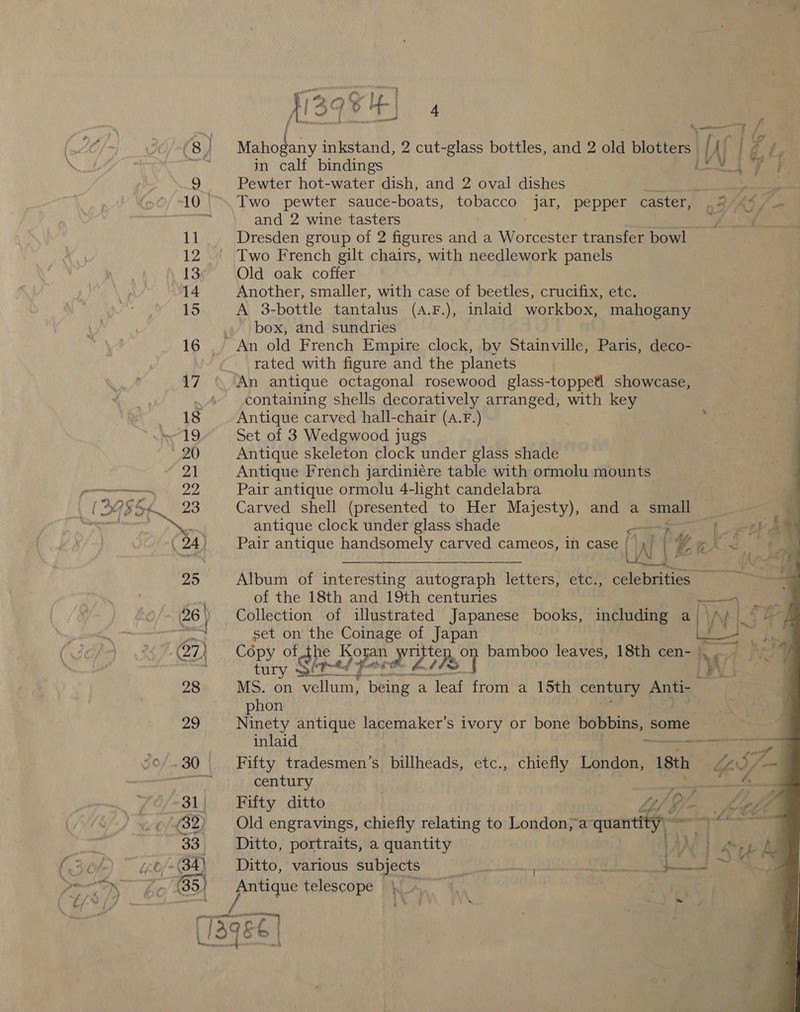 13984 4
(8) Mahogany inkstand, 2 cut-glass bottles, and 2 old blotters
in calf bindings
9 Pewter hot-water dish, and 2 oval dishes
10 Two pewter sauce-boats, tobacco jar, pepper caster,
and 2 wine tasters
11 Dresden group of 2 figures and a Worcester transfer bowl
12 Two French gilt chairs, with needlework panels
13 Old oak coffer
14 Another, smaller, with case of beetles, crucifix, etc.
15 A 3-bottle tantalus (A.F.), inlaid workbox, mahogany
box, and sundries
16 An old French Empire clock, by Stainville, Paris, deco-
rated with figure and the planets
17 An antique octagonal rosewood glass-topped showcase,
containing shells decoratively arranged, with key
18 Antique carved hall-chair (A.F.)
19 Set of 3 Wedgwood jugs
20 Antique skeleton clock under glass shade
21 Antique French jardiniére table with ormolu mounts
22 Pair antique ormolu 4-light candelabra
13985 23 Carved shell (presented to Her Majesty), and a small
antique clock under glass shade
(24) Pair antique handsomely carved cameos, in case
25 Album of interesting autograph letters, etc., celebrities
of the 18th and 19th centuries
(26) Collection of illustrated Japanese books, including a
set on the Coinage of Japan
(27) Copy of the Koran written on bamboo leaves, 18th cen-
tury
28 MS. on vellum, being a leaf from a 15th century Anti-
phon
29 Ninety antique lacemaker's ivory or bone bobbins, some
inlaid
30 Fifty tradesmen's billheads, etc., chiefly London, 18th
century
31 Fifty ditto
(32) Old engravings, chiefly relating to London, a quantity
33 Ditto, portraits, a quantity
(34) Ditto, various subjects
(35) Antique telescope
13986